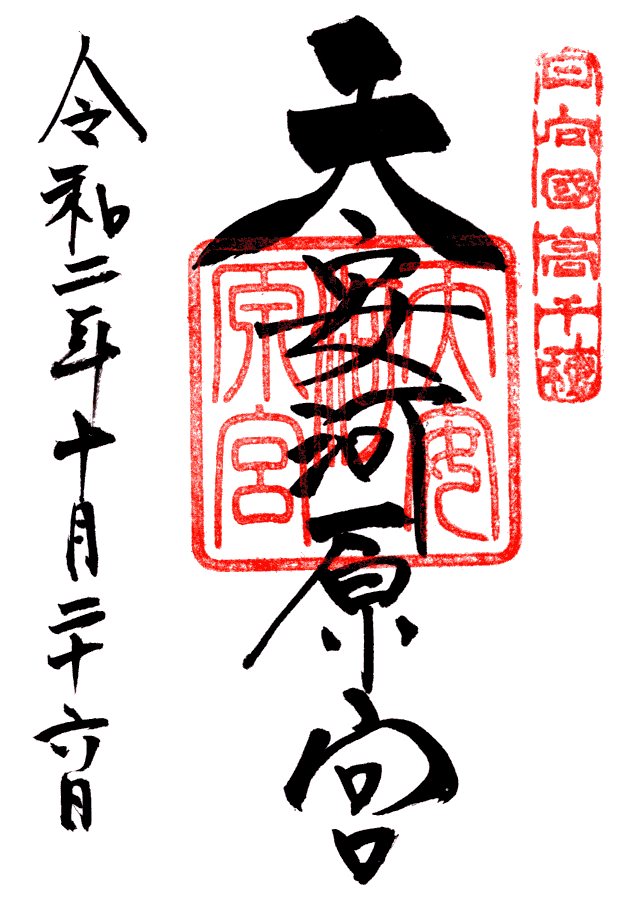 日向國高千穂
天安河原宮
天安河原宮
令和二年十月二十六日